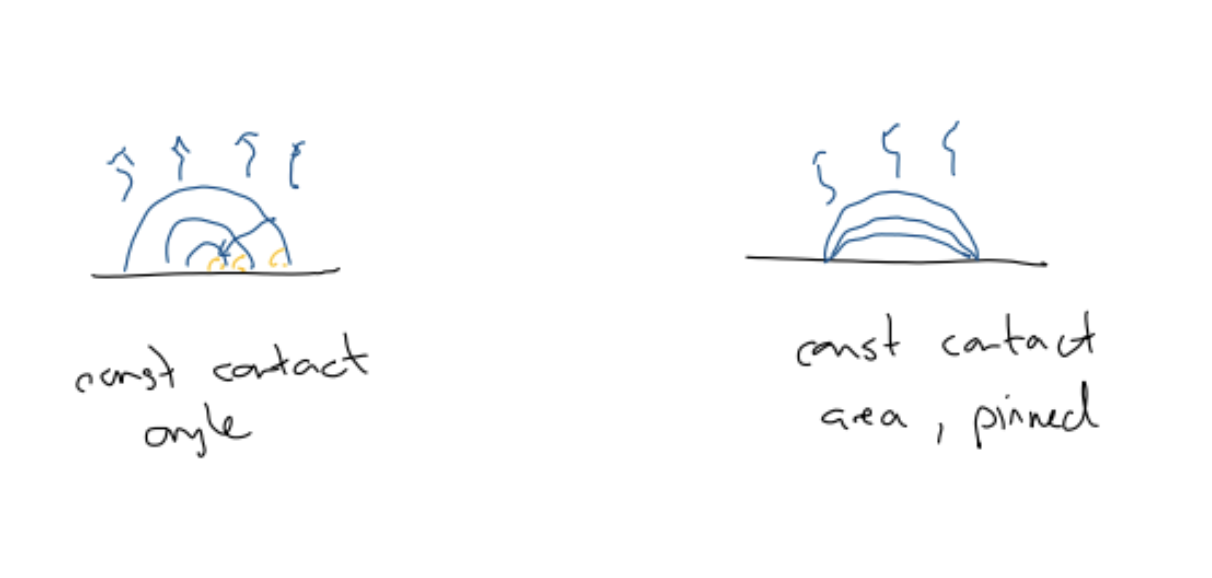 const contact
angle
const contact
area, pinned